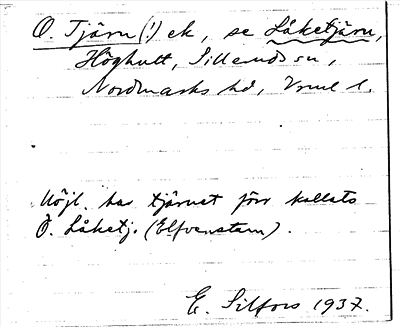 O. Tjärn (!) ek, se Låketjärn,
Höghult, Sillerud sn,
Nordmarks hd, Vrml l.
Möjl. har tjärnet förr kallats
Ö. Låketj. (Elfvenstam).
E. Silfors 1937.